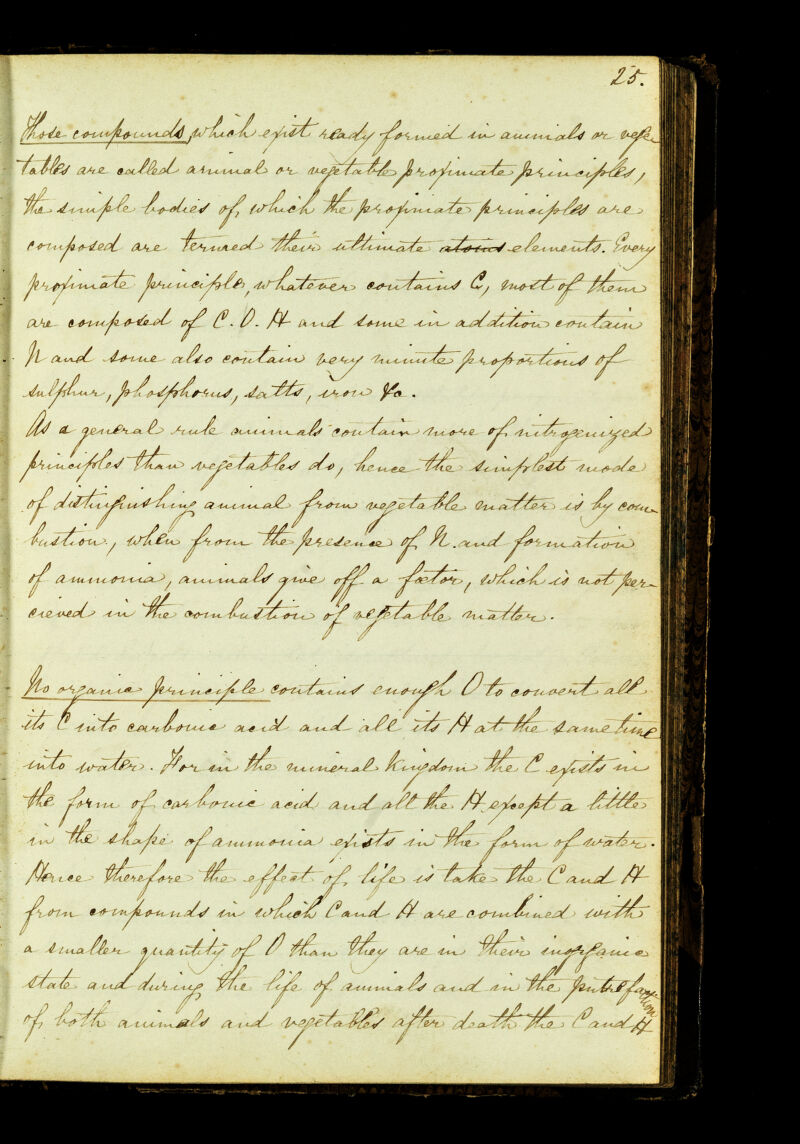 25.
Those compounds, which exist ready formed in animals or vege
tables are called animal or vegetable proximate principles,
the simple bodies of, which the proximate principles are
composed are termed their ultimate atoms elements. Every
proximate principle, whatever contains C, most of them
are composed of C. O. H and some in addition contain
N and some also contain very minute proportions of
sulphur, phosphorus, salts, iron &c.
As a general rule animals contain more of nitrogenized
principles than vegetables do, hence the simplest mode
of distinguishing animal from vegetable matter is by com-
bustion, when from the presence of N. and formation
of ammonia, animals give off a fœtor, which is not per-
cieved in the combustion of vegetable matter.
No organic principle contains enough O to convert all
its C into carbonic acid and all its H at the same time
into water. For in the mineral kingdom the C exists in
the form of carbonic acid and all the H except a little
in the shape of ammonia exists in the form of water.
Hence therefore the effect of life is take the C and H
from compounds in which C and H are combined with
a smaller quantity of O than they are in their inorganic
state and during the life of animals and in the putrefaction
of both animals and vegetables after death the C and H